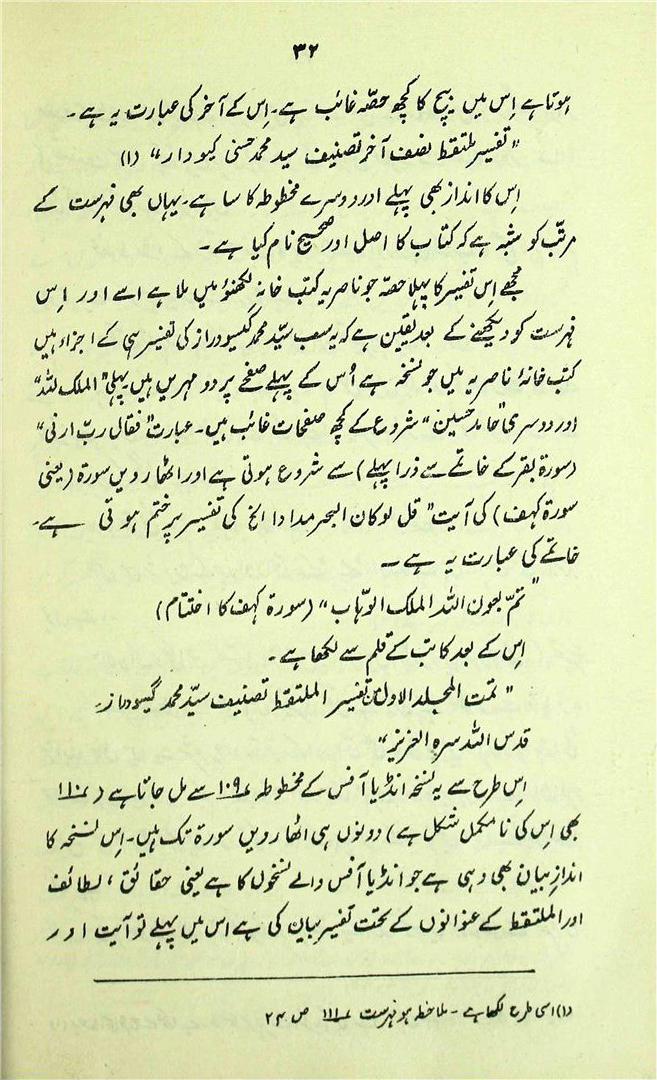 ۳۲
ہوتا ہے اِس میں بیچ کا کچھ حصّہ غائب ہے۔ اِس کے آخر کی عبارت یہ ہے۔
"تفسیر ملتقط نصف آخر تصنیف سید محمد حسنی گیسو دار" (۱)
اِس کا انداز بھی پہلے اور دوسرے مخطوطہ کا سا ہے۔ یہاں بھی فہرست کے
مرتّب کو شبہ ہے کہ کتاب کا اصل اور صحیح نام کیا ہے۔
مجھے اِس تفسیر کا پہلا حصّہ جو ناصریہ کتب خانہ لکھنؤ میں ملا ہے اسے اور اِس
فہرست کو دیکھنے کے بعد یقین ہے کہ یہ سب سیّد محمد گیسودراز کی تفسیر ہی کے اجزاء ہیں
کتب خانۂ ناصریہ میں جو نسخہ ہے اُس کے پہلے صفحے پر دو مہریں ہیں پہلی "الملک للہ"
اور دوسری "حامد حسین" شروع کے کچھ صفحات غائب ہیں۔ عبارت "فقال ربّ ارنی"
(سورۃ بقر کے خاتمے سے ذرا پہلے) سے شروع ہوتی ہے اور اٹھارویں سورۃ (یعنی
سورۃ کہف) کی آیت "قل لوکان البحر مدادا الخ کی تفسیر پر ختم ہوتی ہے۔
خاتمے کی عبارت یہ ہے ۔۔
"تمّ بعون اللہ الملک الوہّاب" (سورۃ کہف کا اختتام)
اِس کے بعد کاتب کے قلم سے لکھا ہے۔
"تمت المجلد الاول من تفسیر الملتقط تصنیف سیّد محمد گیسودراز۔
قدس اللہ سرہ العزیز"
اِس طرح سے یہ نسخہ انڈیا آفس کے مخطوطہ ۱۰۹ سے مل جاتا ہے (۱۱۰
بھی اِس کی نامکمل شکل ہے) دونوں ہی اٹھارویں سورۃ تک ہیں۔ اِس نسخہ کا
اندازِ بیان بھی وہی ہے جو انڈیا آفس والے نسخوں کا ہے یعنی حقائق، لطائف
اور الملتقط کے عنوانوں کے تحت تفسیر بیان کی ہے اس میں پہلے تو آیت اور
(۱) اسی طرح لکھا ہے۔ ملاحظہ ہو فہرست ۱۱۱ ص ۲۴